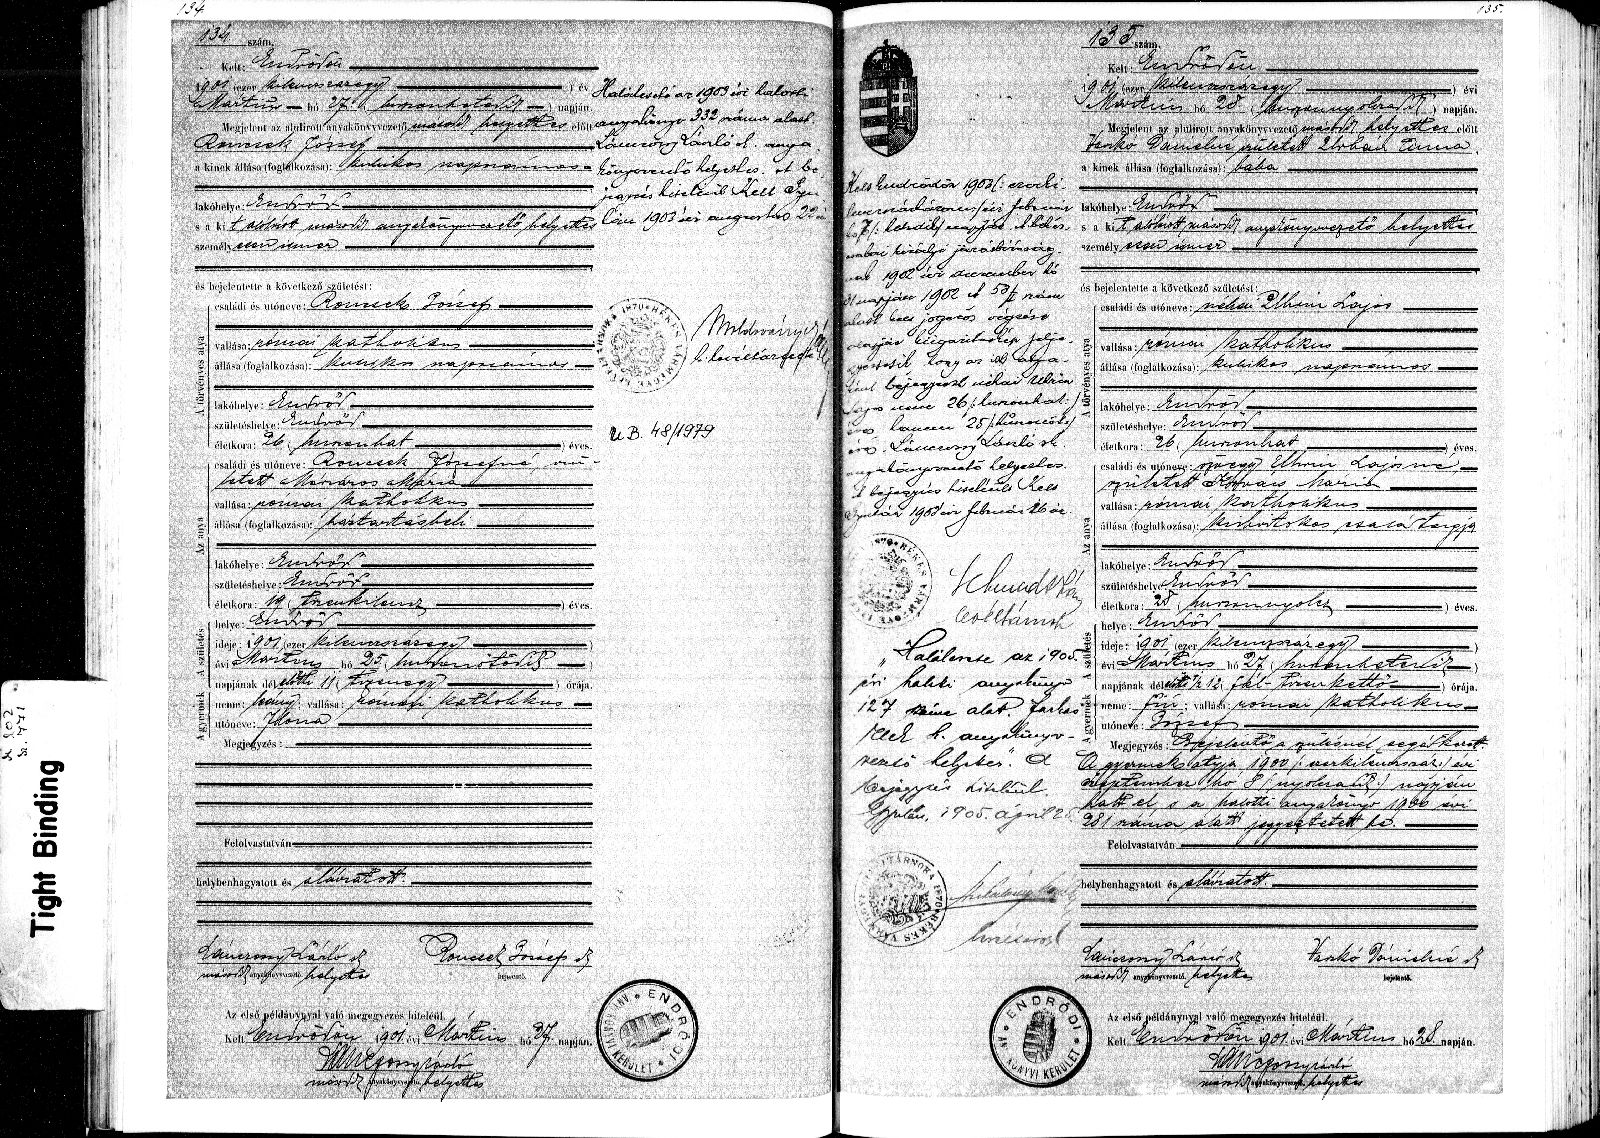 134
134 szám.
Kelt: Endrődön
1901 (ezer kilencszázegy) év
Martius hó 27 (huszonhetedik) napján.
Megjelent az alulirott anyakönyvvezető másod helyettes előtt
Roncsek József
a kinek állása (foglalkozása): kubikos napszámos
lakóhelye: Endrőd
s a kit alólirott másod anyakönyvvezető helyettes
személyesen ismer
és bejelentette a következő születést:
A törvényes atya
családi és utóneve: Roncsek József
vallása: római katholikus
állása (foglalkozása): kubikos napszámos
lakóhelye: Endrőd
születéshelye: Endrőd
életkora: 26 (huszonhat) éves.
Az anya
családi és utóneve: Roncsek Józsefné, szü-
letett Mária
vallása: római katholikus
állása (foglalkozása): háztartásbeli
lakóhelye: Endrőd
születéshelye: Endrőd
életkora: 19 (tizenkilencz) éves.
A gyermek A születés
helye: Endrőd
ideje: 1901 (ezer kilencszázegy)
évi Martius hó 25 (huszonötödik)
napjának délelőtti 11 (tizenegy) órája.
neme: leány; vallása: római katholikus
utóneve: Ilona
Megjegyzés:
Felolvastatván
helybenhagyatott és aláiratott.
Lánczony László sk
másod anyakönyvvezető helyettes
Roncsek József sk
bejelentő.
Az első példánynyal való megegyezés hiteléül.
Kelt Endrődön 1901 évi Mártius hó 27 napján.
másod anyakönyvvezető helyettes
ENDRŐDI ANYAKÖNYVI KERÜLET
Haláleset az 1903 évi halotti
anyakönyv 332 száma alatt.
Lánczony László sk. anya-
könyvvezető helyettes. A be-
jegyzés hiteléül Kelt Gyu-
lán 1903 évi augusztus 22 én
b. levéltárnok
U B. 48/1979
Tight Binding
135.
135 szám.
Kelt: Endrődön
1901 (ezer kilencszázegy) évi
Martius hó 28 (huszonnyolczadik) napján.
Megjelent az alulirott anyakönyvvezető másod helyettes előtt
Vaskó Dánielné született Urban Anna
a kinek állása (foglalkozása): bába
lakóhelye: Endrőd
s a kit alólirott másod anyakönyvvezető helyettes
személyesen ismer
és bejelentette a következő születést:
A törvényes atya
családi és utóneve: néhai Uhrin Lajos
vallása: római katholikus
állása (foglalkozása): kubikos napszámos
lakóhelye: Endrőd
születéshelye: Endrőd
életkora: 26 (huszonhat) éves.
Az anya
családi és utóneve: özvegy Uhrin Lajosné
született Kovács Mária
vallása: római katholikus
állása (foglalkozása): családtagja
lakóhelye: Endrőd
születéshelye: Endrőd
életkora: 28 (huszonnyolcz) éves.
A gyermek A születés
helye: Endrőd
ideje: 1901 (ezer kilencszázegy)
évi Martius hó 27 (huszonhetedik)
napjának délelőtti 1/2 12 (fél-tizenkettő) órája.
neme: fiú; vallása: római katholikus
utóneve: József
Megjegyzés: Bejelentő a szülésnél segédkezett
A gyermek atyja 1900 (ezerkilencszáz) évi
szeptember hó 8 (nyolczadik) napján
halt el, s a halotti anyakönyv 1900 évi
281 száma alatt jegyeztetett be.
Felolvastatván
helybenhagyatott és aláiratott.
Lánczony László sk
másod anyakönyvvezető helyettes
Vaskó Dánielné sk
bejelentő.
Az első példánynyal való megegyezés hiteléül.
Kelt Endrődön 1901 évi Mártius hó 28 napján.
másod anyakönyvvezető helyettes
ENDRŐDI ANYAKÖNYVI KERÜLET
Kelt Endrődön 1903
évi február
1902 évi deczember hó
31 napján 1902
néhai Uhrin
Lajos neve 26 (huszonhat)
éves hanem 25 (huszonöt)
éves. Lánczony László sk.
anyakönyvvezető helyettes.
A bejegyzés hiteléül Kelt
Gyulán 1903 évi február 26 án.
„Halálesete az 1905.
évi halotti anyakönyv
127 száma alatt. Farkas
b. anyakönyv-
vezető helyettes." A
bejegyzés hiteléül.
Gyulán, 1905. april 25.